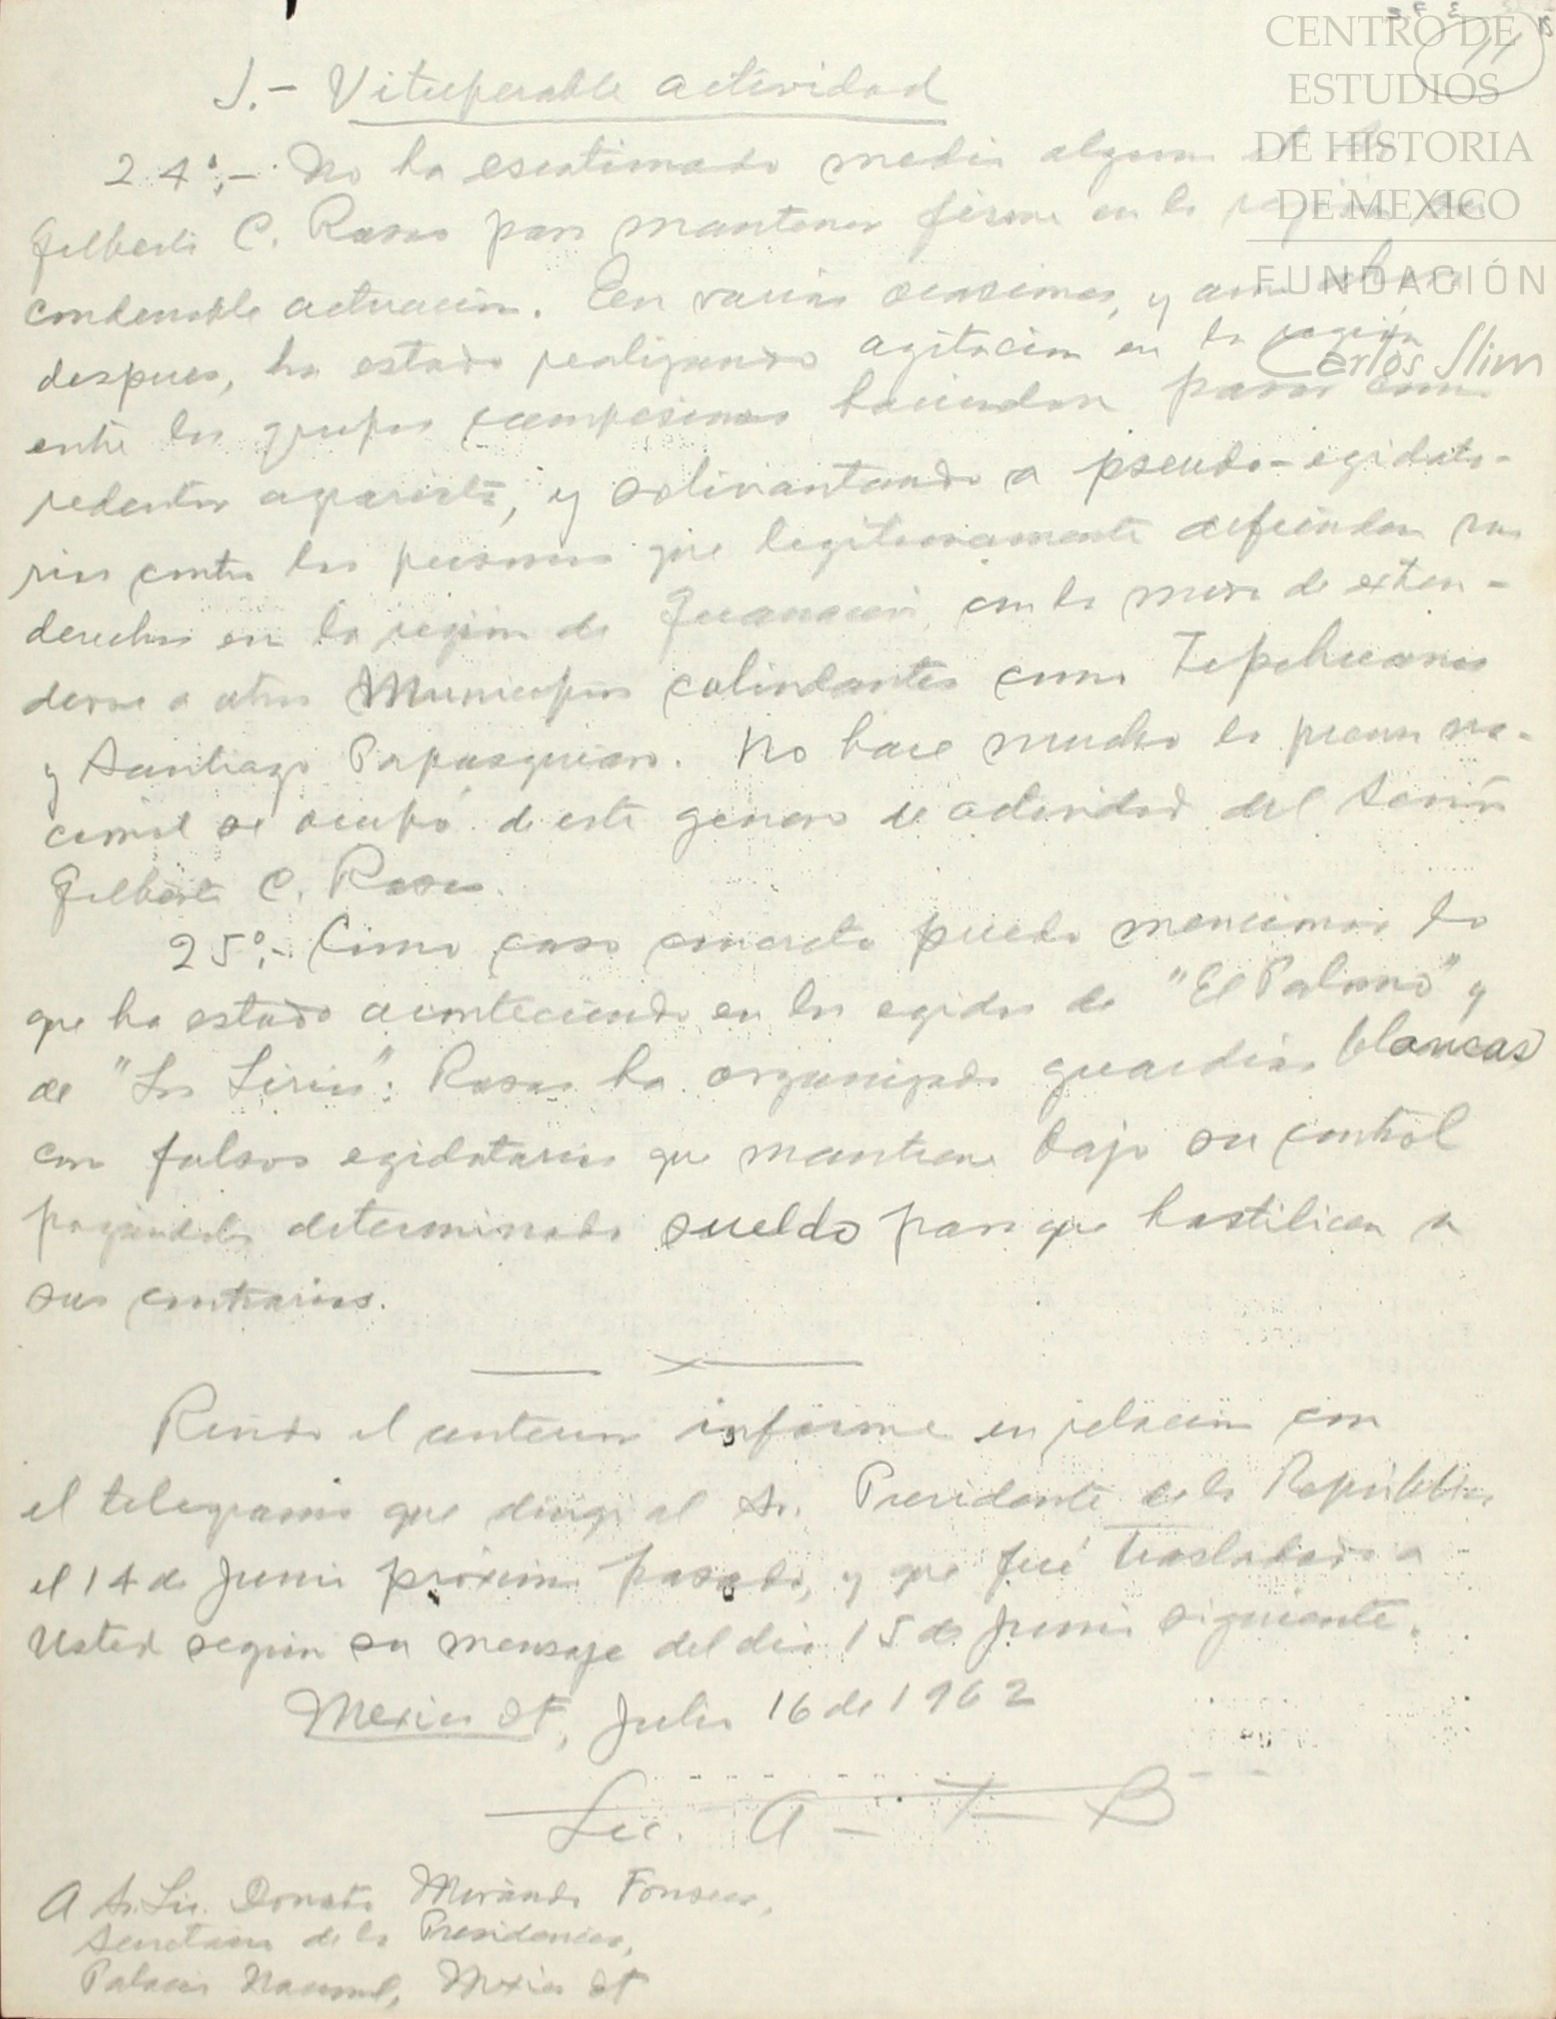 11
CENTRO DE
ESTUDIOS
DE HISTORIA
DE MEXICO
FUNDACIÓN
Carlos Slim
J.- Vituperable actividad
24º.- No ha escatimado medio alguno el Sr.
Gilberto C. Rosas para mantener firme en la región su
condenable actuación. En varias ocasiones, y aun ahora
despues, ha estado realizando agitación en la región
entre los grupos campesinos haciendose pasar como
redentor agrarista, y solivantando a pseudo-egidata-
rios contra las personas que legitimamente defienden sus
derechos en la región de Guanaceví, con la mira de exten-
derse a otros Municipios colindantes como Tepehuanes
y Santiago Papasquiaro. No hace mucho la prensa na-
cional se ocupó de este genero de actividad del Señor
Gilberto C. Rosas.
25º.- Como caso concreto puedo mencionar lo
que ha estado aconteciendo en los egidos de "El Palomo" y
de "Los Lirios": Rosas ha organizado guardias blancas
con falsos egidatarios que mantiene bajo su control
pagandoles determinado sueldo para que hostilicen a
sus contrarios.
Rindo el anterior informe en relación con
el telegrama que dirigí al Sr. Presidente de la República
el 14 de Junio próximo pasado, y que fué trasladado a
Usted según su mensaje del dia 15 de junio siguiente.
Mexico DF, Julio 16 de 1962
Lic. A - X - B
A Sr. Lic. Donato Miranda Fonseca,
Secretario de la Presidencia,
Palacio Nacional, Mexico DF